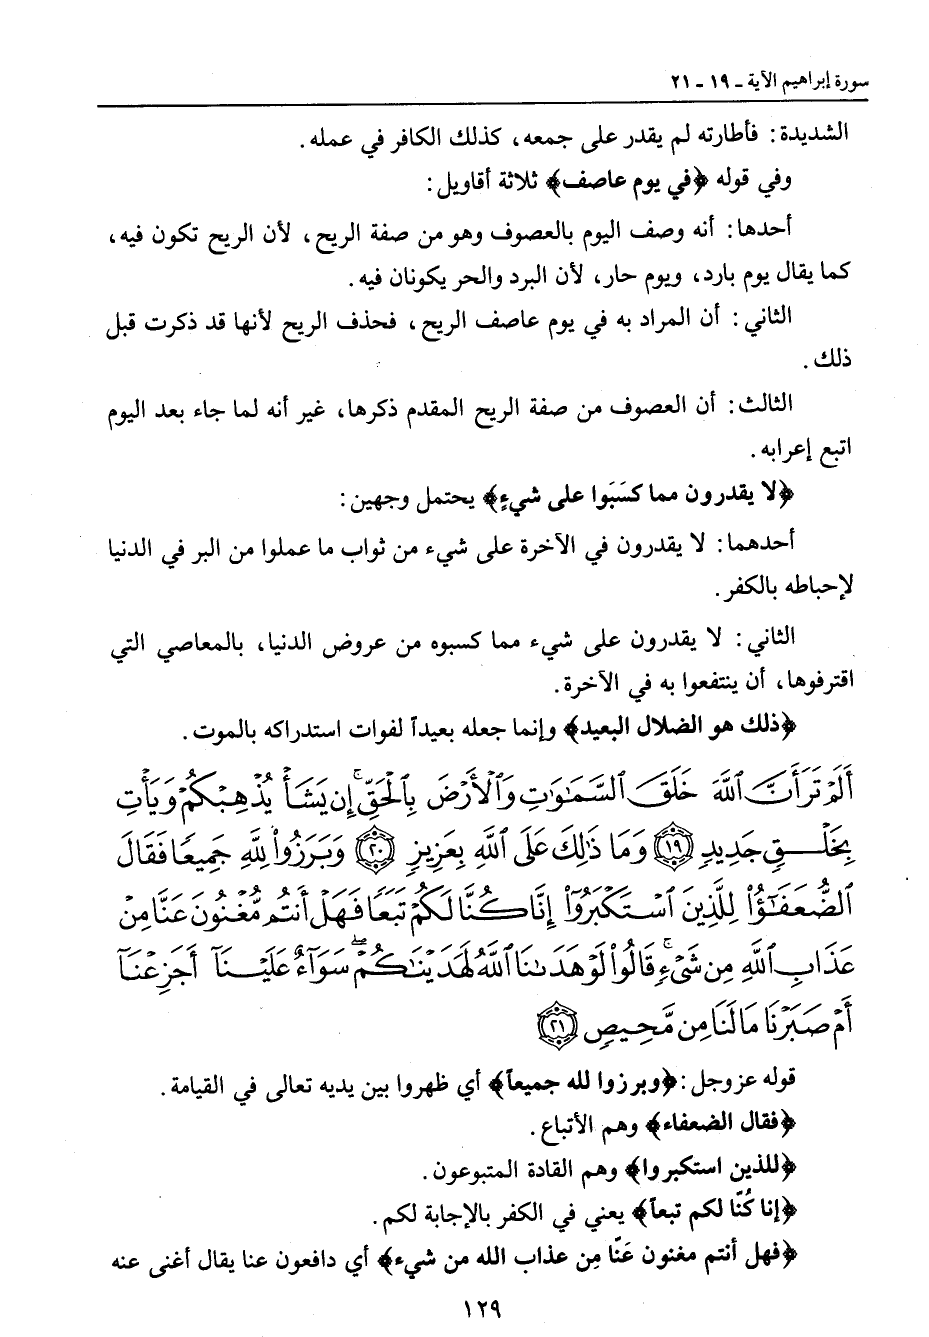 سورة إبراهيم الآية ـ ١٩ ـ ٢١
الشديدة: فأطارته لم يقدر على جمعه، كذلك الكافر في عمله.
وفي قوله ﴿في يوم عاصف﴾ ثلاثة أقاويل:
أحدها: أنه وصف اليوم بالعصوف وهو من صفة الريح، لأن الريح تكون فيه،
كما يقال يوم بارد، ويوم حار، لأن البرد والحر يكونان فيه.
الثاني: أن المراد به في يوم عاصف الريح، فحذف الريح لأنها قد ذكرت قبل
ذلك.
الثالث: أن العصوف من صفة الريح المقدم ذكرها، غير أنه لما جاء بعد اليوم
اتبع إعرابه.
﴿لا يقدرون مما كسَبَوا على شيءٍ﴾ يحتمل وجهين:
أحدهما: لا يقدرون في الآخرة على شيء من ثواب ما عملوا من البر في الدنيا
لإحباطه بالكفر.
الثاني: لا يقدرون على شيء مما كسبوه من عروض الدنيا، بالمعاصي التي
اقترفوها، أن ينتفعوا به في الآخرة.
﴿ذلك هو الضلال البعيد﴾ وإنما جعله بعيداً لفوات استدراكه بالموت.
أَلَمْ تَرَ أَنَّ ٱللَّهَ خَلَقَ ٱلسَّمَٰوَٰتِ وَٱلْأَرْضَ بِٱلْحَقِّ ۚ إِن يَشَأْ يُذْهِبْكُمْ وَيَأْتِ
بِخَلْقٍ جَدِيدٍ ﴿١٩﴾ وَمَا ذَٰلِكَ عَلَى ٱللَّهِ بِعَزِيزٍ ﴿٢٠﴾ وَبَرَزُوا۟ لِلَّهِ جَمِيعًا فَقَالَ
ٱلضُّعَفَٰٓؤُا۟ لِلَّذِينَ ٱسْتَكْبَرُوٓا۟ إِنَّا كُنَّا لَكُمْ تَبَعًا فَهَلْ أَنتُم مُّغْنُونَ عَنَّا مِنْ
عَذَابِ ٱللَّهِ مِن شَىْءٍ ۚ قَالُوا۟ لَوْ هَدَىٰنَا ٱللَّهُ لَهَدَيْنَٰكُمْ ۖ سَوَآءٌ عَلَيْنَآ أَجَزِعْنَآ
أَمْ صَبَرْنَا مَا لَنَا مِن مَّحِيصٍ ﴿٢١﴾
قوله عز وجل: ﴿وبرزوا لله جميعاً﴾ أي ظهروا بين يديه تعالى في القيامة.
﴿فقال الضعفاء﴾ وهم الأتباع.
﴿للذين استكبروا﴾ وهم القادة المتبوعون.
﴿إنا كُنّا لكم تبعاً﴾ يعني في الكفر بالإجابة لكم.
﴿فهل أنتم مغنون عَنّا مِن عذاب الله من شيء﴾ أي دافعون عنا يقال أغنى عنه
١٢٩